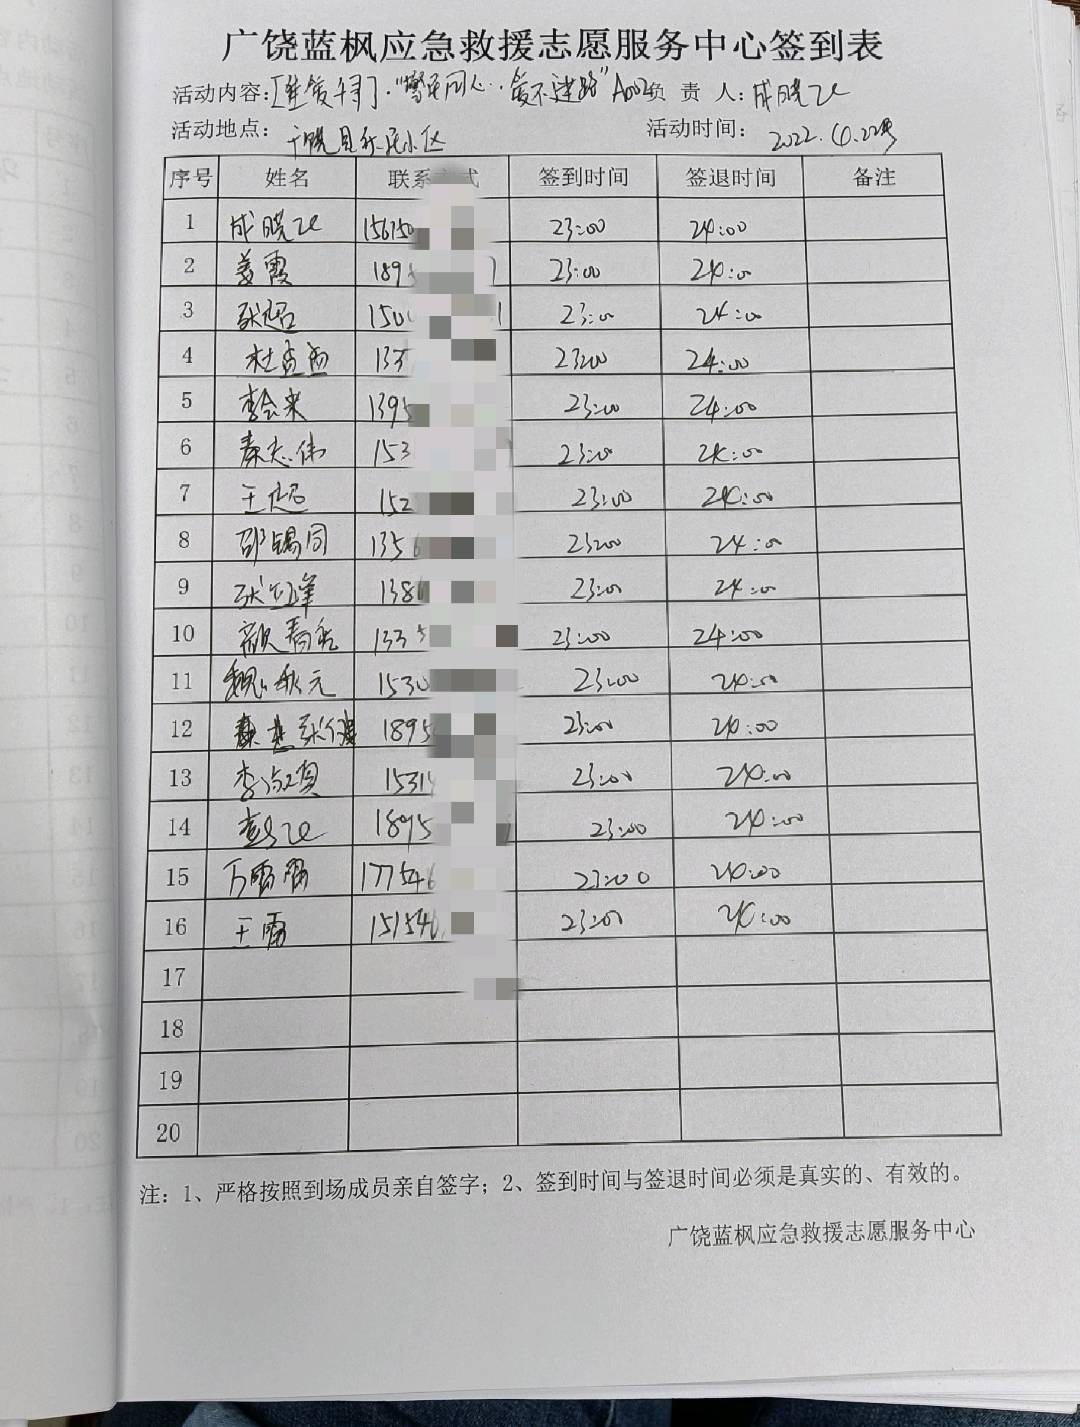 广饶蓝枫应急救援志愿服务中心签到表
活动内容:[维爱寻] "警民同心·爱不迷路" A002 负 责 人: 成晓飞
活动地点: 广饶县乐民小区 活动时间: 2022.10.22号
序号 姓名 联系 式 签到时间 签退时间 备注
1 成晓飞 156150 23:00 24:00
2 姜霞 1895 23:00 24:00
3 张超 150 1 23:00 24:00
4 杜 133 2300 24:00
5 李会来 1395 23:00 24:00
6 秦志伟 153 23:00 24:00
7 王超 152 23:00 24:00
8 邵锡同 1356 2300 24:00
9 张红峰 1386 23:00 24:00
10 1335 23:00 24:00
11 魏秋元 1530 23:00 24:00
12 1895 23:00 24:00
13 李 1531 23:00 24:00
14 1895 23:00 24:00
15 万雷雷 177546 23:00 24:00
16 王雷 151546 23:00 24:00
17
18
19
20
注：1、严格按照到场成员亲自签字；2、签到时间与签退时间必须是真实的、有效的。
广饶蓝枫应急救援志愿服务中心